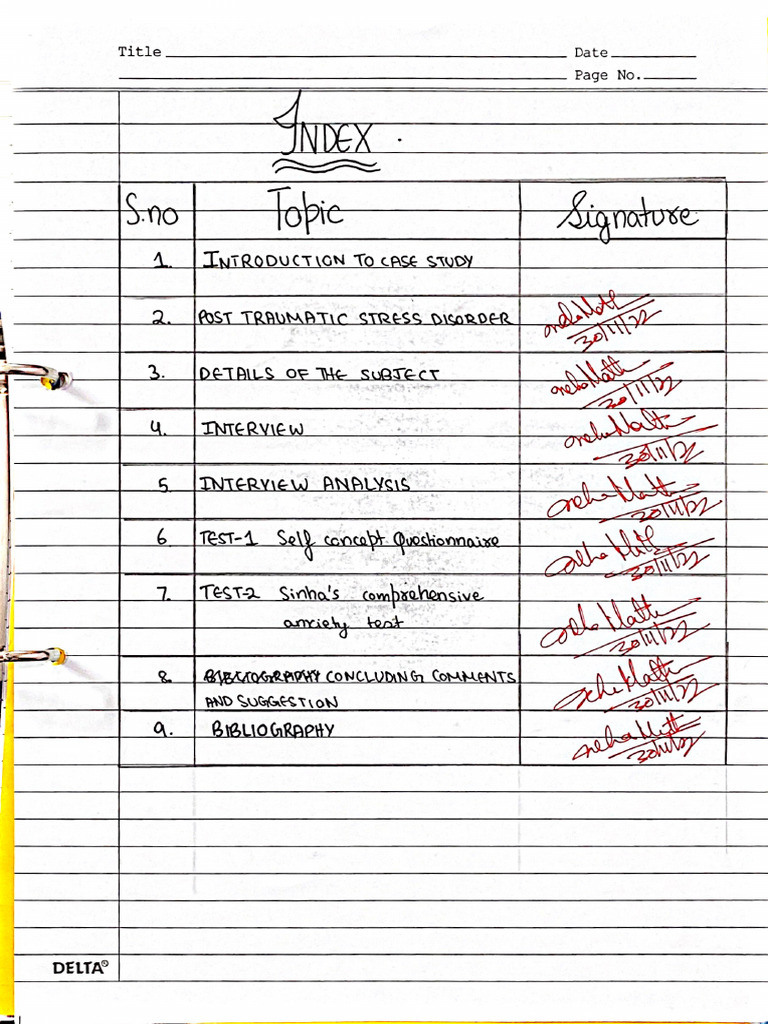 Title Date
Page No.
INDEX.
S.no Topic Signature
1. INTRODUCTION TO CASE STUDY
2. POST TRAUMATIC STRESS DISORDER
30/11/22
3. DETAILS OF THE SUBJECT
30/11/22
4. INTERVIEW
30/11/22
5. INTERVIEW ANALYSIS
30/11/22
6. TEST-1 Self concept Questionnaire
30/11/22
7. TEST-2 Sinha's comprehensive
anxiety test
30/11/22
8. BIBLIOGRAPHY CONCLUDING COMMENTS
AND SUGGESTION
30/11/22
9. BIBLIOGRAPHY
30/11/22
DELTA®